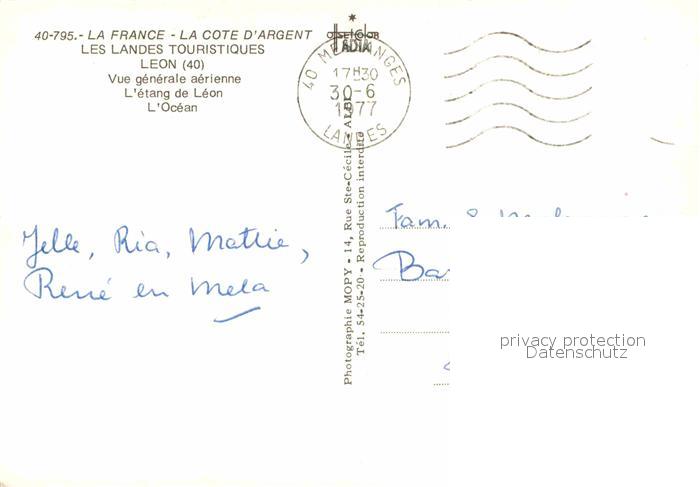 40-795.- LA FRANCE - LA COTE D'ARGENT
LES LANDES TOURISTIQUES
LEON (40)
Vue générale aérienne
L'étang de Léon
L'Océan
17H30
30-6
1977
LANDES
Photographie MOPY - 14, Rue Ste-Cécile - ALBI
Tél. 54-25-20 - Reproduction interdite
Jelle, Ria, Mattie,
René en Mela
Fam.
privacy protection
Datenschutz